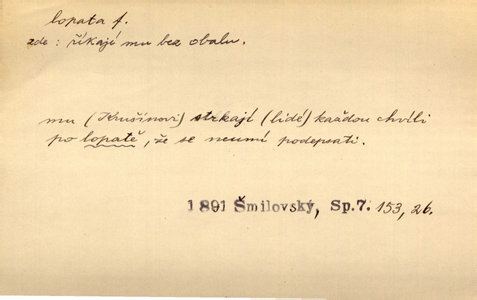 lopata f.
zde : říkají mu bez obalu.
mu (Krušinovi) strkají (lidé) každou chvíli
po lopatě, že se neumí podepsati.
1891 Šmilovský, Sp.7. 153, 26.